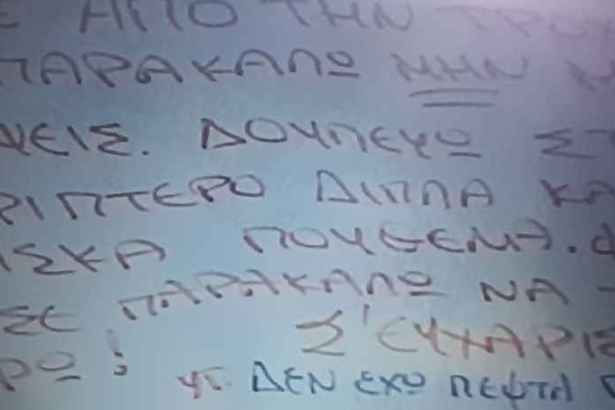 ΑΠΟ ΤΗΝ ΤΡΟ
ΠΑΡΑΚΑΛΩ ΜΗΝ Μ
ΨΕΙΣ. ΔΟΥΛΕΥΩ ΣΤ
ΡΙΠΤΕΡΟ ΔΙΠΛΑ ΚΑ
ΙΣΚΑ ΠΟΥΘΕΝΑ.
ΣΕ ΠΑΡΑΚΑΛΩ ΝΑ
ΡΩ! Σ'ΕΥΧΑΡΙΣ
ΥΓ. ΔΕΝ ΕΧΩ ΛΕΦΤΑ